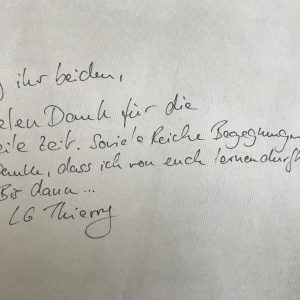 ihr beiden,
Dank für die
Zeit. Soviele Reiche Begegnungen
Danke, dass ich von euch lernen durfte
Bis dann...
LG Thierry